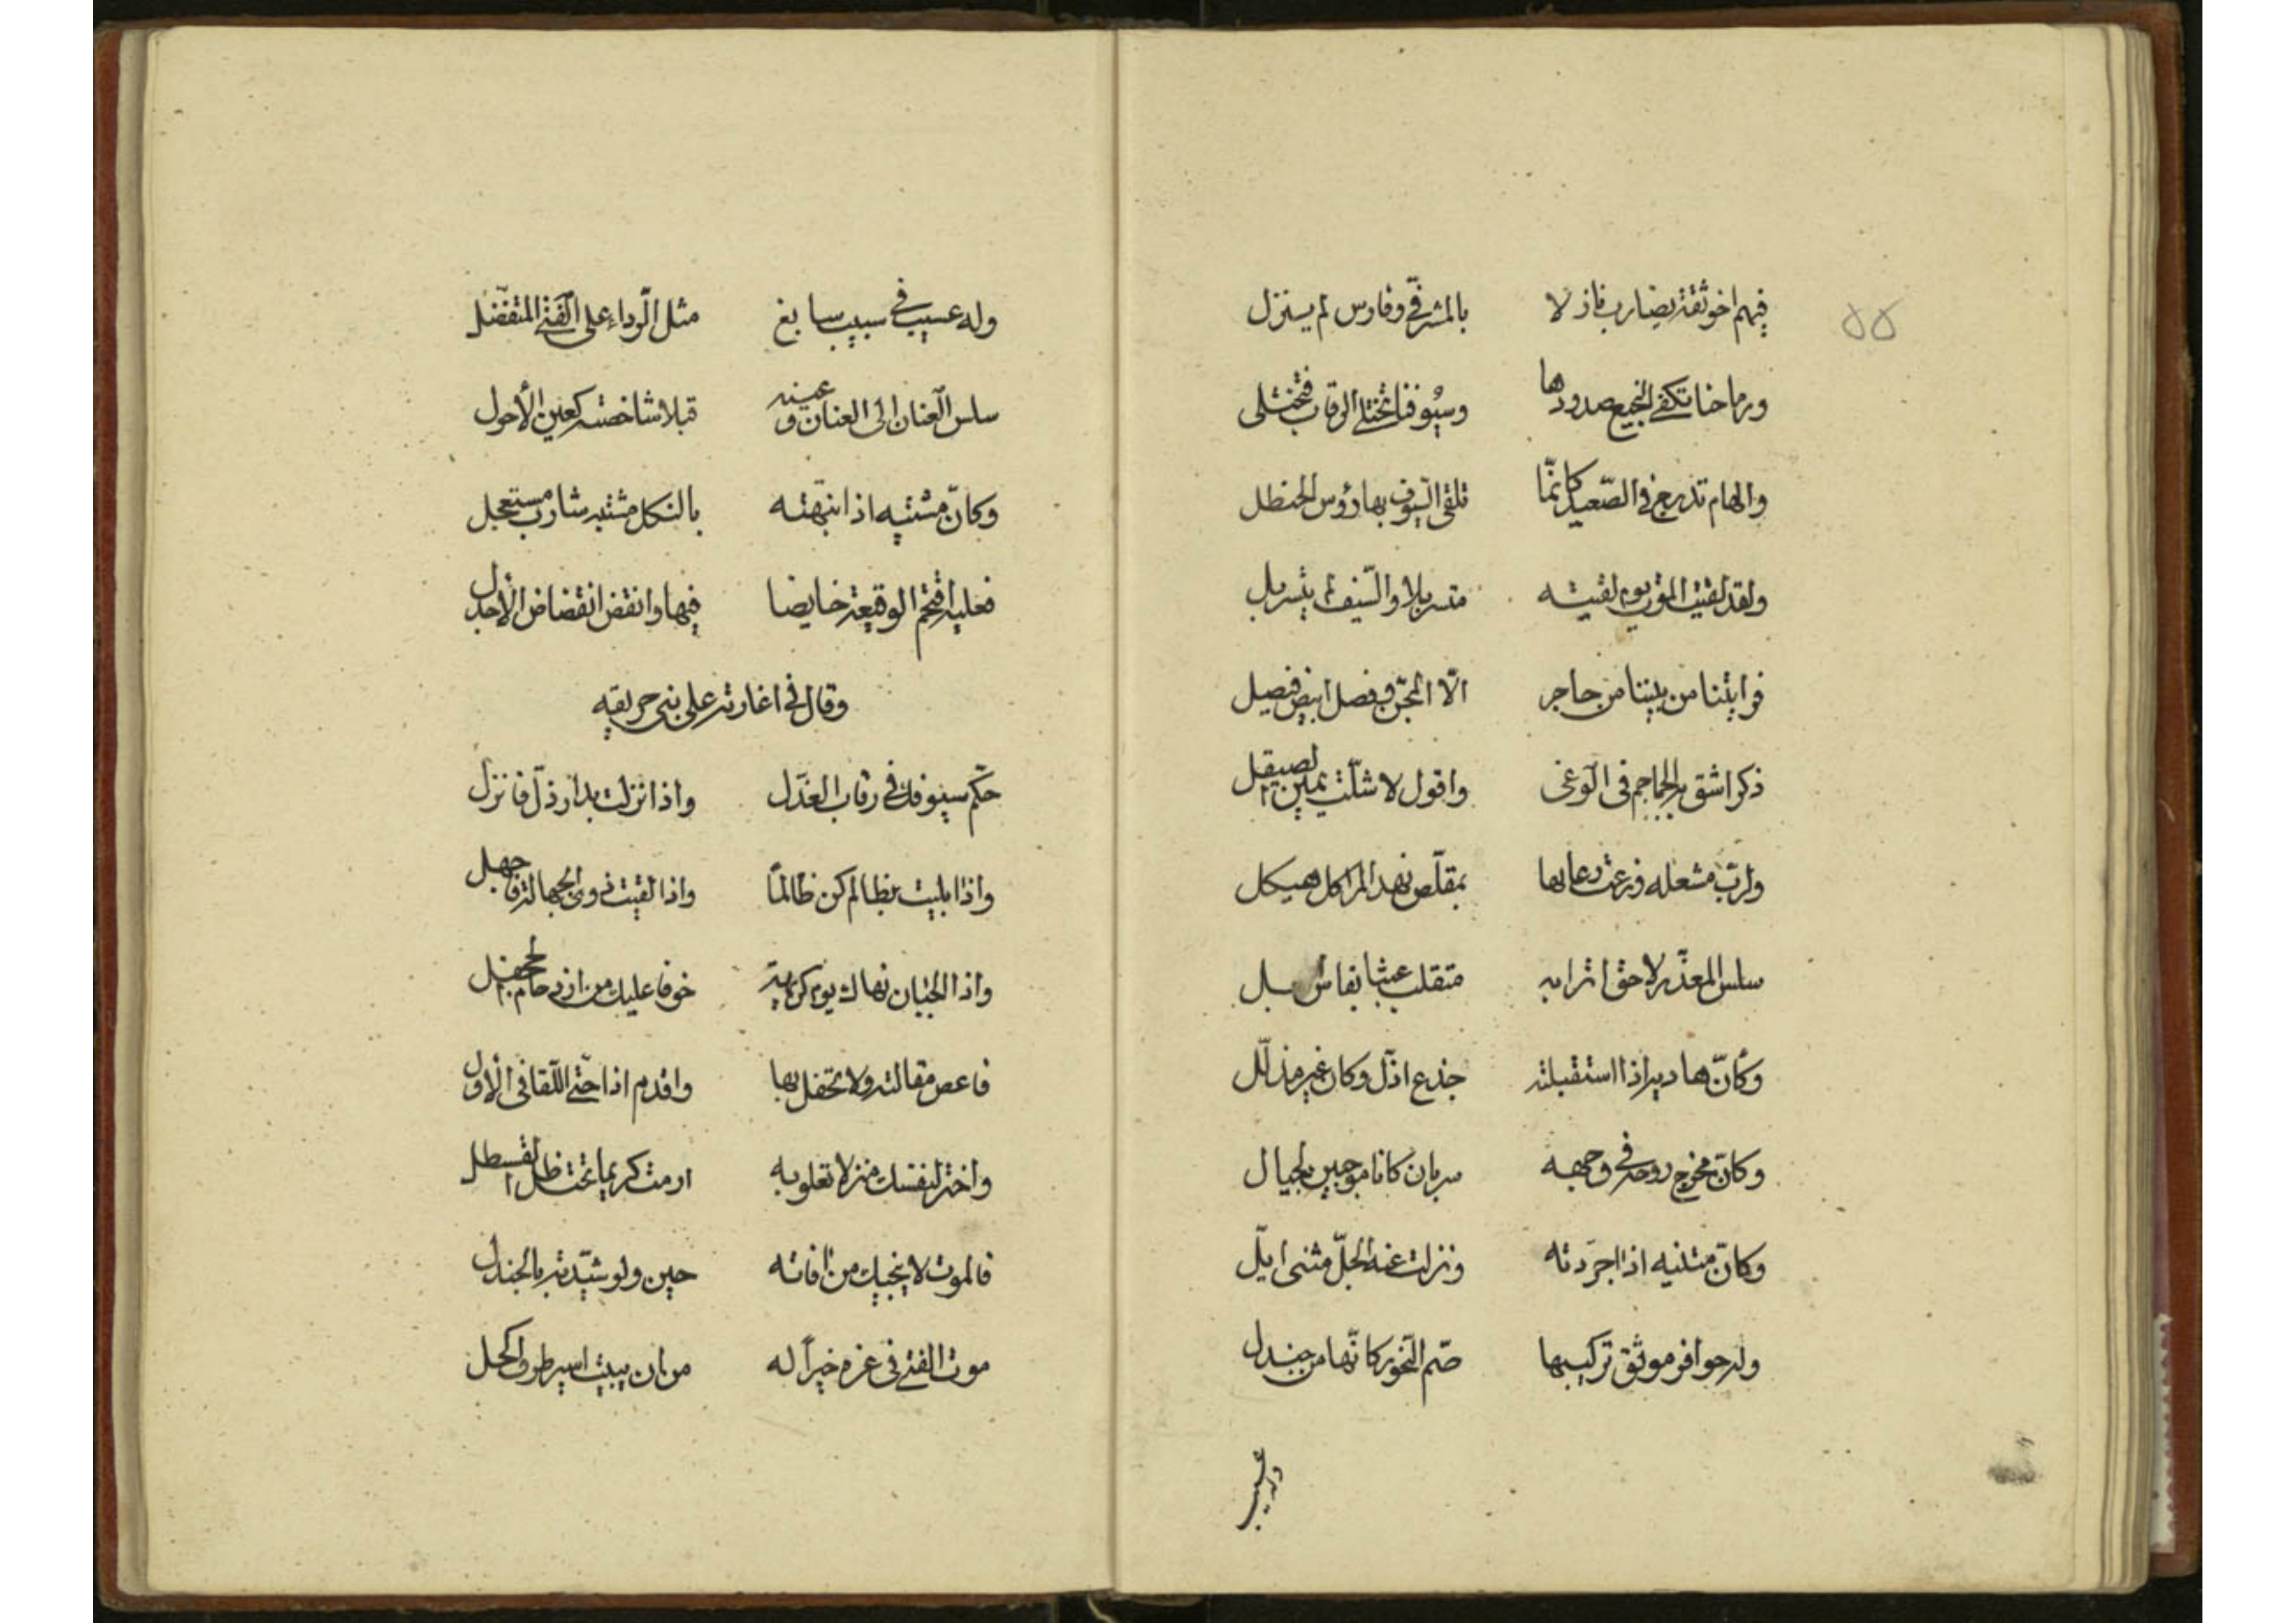 ٥٥
فيهم اخو ثقة يضارب نازلا بالمشرفي وفارس لم ينزل
ورماحنا تكف النجيع صدورها وسيوفنا تختلي الرقاب فتختلي
والهام تدرج في الصعيد كانّما تلقى السيوف بها رؤس الحنظل
ولقد لقيت الموت يوم لقيته متسربلا والسّيف لم يتسربل
فرايتنا من بيننا من حاجر الّا المجن وفصل ابيض فيصل
ذكر اشق به الجماجم فى الوغى واقول لا شلّت يمين الصيقل
ولربّ مشعله وزعت رعالها بمقلّص نهد المراكل هيكل
سلس المعذّر لاحق اقرابه متقلب عبثا بفاس
وكأنّ هاديه اذا استقبلته جذع اذلّ وكان غير مذلّل
وكانّ مخرج روحه في وجهه سربان كانا موجين لجيال
وكانّ متنيه اذا جرّدته ونزلت عنه الجلّ متنى ايّل
وله حوافر موثق تركيبها صمّ النسور كانّها من جندل
وله عسيب
وله عسيب في سبيب سابغ مثل الرّداء على الفتى المتفضّل
سلس العنان الى العنان وعينه قبلا شاخصة كعين الأحول
وكانّ مشتيه اذا نبّهته بالنكل مشتبه شارب مستعجل
فعليه اقتحم الوقيعة خايضا فيها وانقض انقضاض الأجدل
وقال في اغارته على بنى حريقيه
حكّم سيوفك في رقاب العذّل واذا نزلت بدار ذلّ فانزل
واذا بليت بظالم كن ظالمًا واذا لقيت ذوى الجهالة فاجهل
واذا الجبان نهاك يوم كريهة خوفا عليك من ازدحام الجحفل
فاعص مقالته ولا تحفل بها واقدم اذا حق اللّقا فى الأول
واختر لنفسك منزلا تعلو به او مت كريما تحت ظل القسطل
فالموت لا ينجيك من افاته حين ولو شيّدته بالجندل
موت الفتى فى عزه خيراً له من ان يبيت اسير طرف اكحل